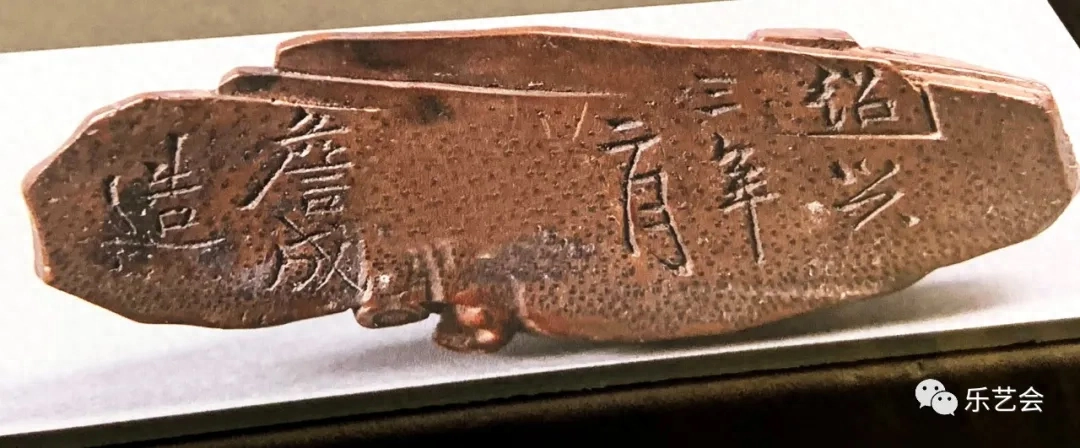 绍兴
三年
二月
詹成
造
乐艺会